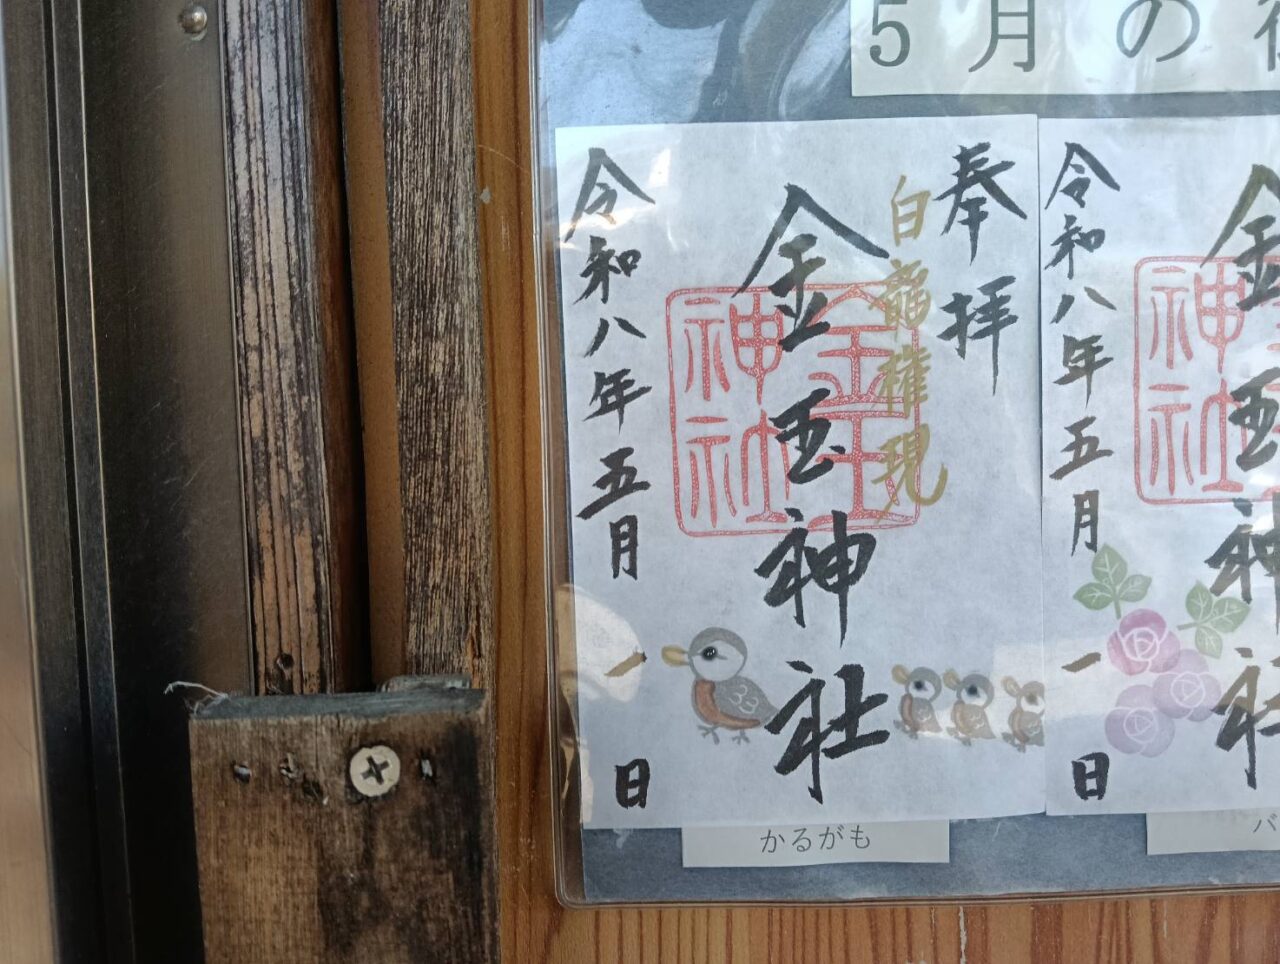 5月の
奉拝
白龍権現
金玉神社
金玉神社
令和八年五月一日
かるがも
金玉神社
神社
令和八年五月一日
バ